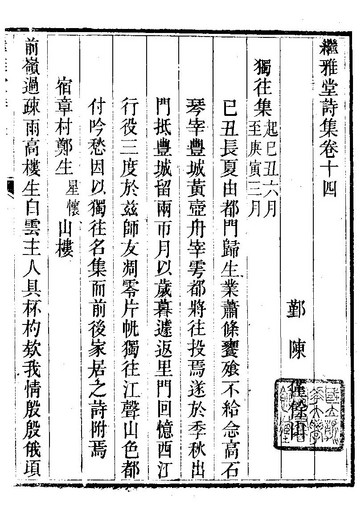 繼雅堂詩集卷十四
鄞 陳
獨往集 起己丑六月
至庚寅三月
己丑長夏由都門歸生業蕭條饔飱不給念高石
琴宰豐城黃壺舟宰雩都將往投焉遂於季秋出
門抵豐城留兩帀月以歲暮遽返里門回憶西江
行役三度於兹師友凋零片帆獨往江聲山色都
付吟愁因以獨往名集而前後家居之詩附焉
宿章村鄭生 星懷 山樓
前嶺過疎雨高樓生白雲主人具杯杓欵我情殷殷俄頃